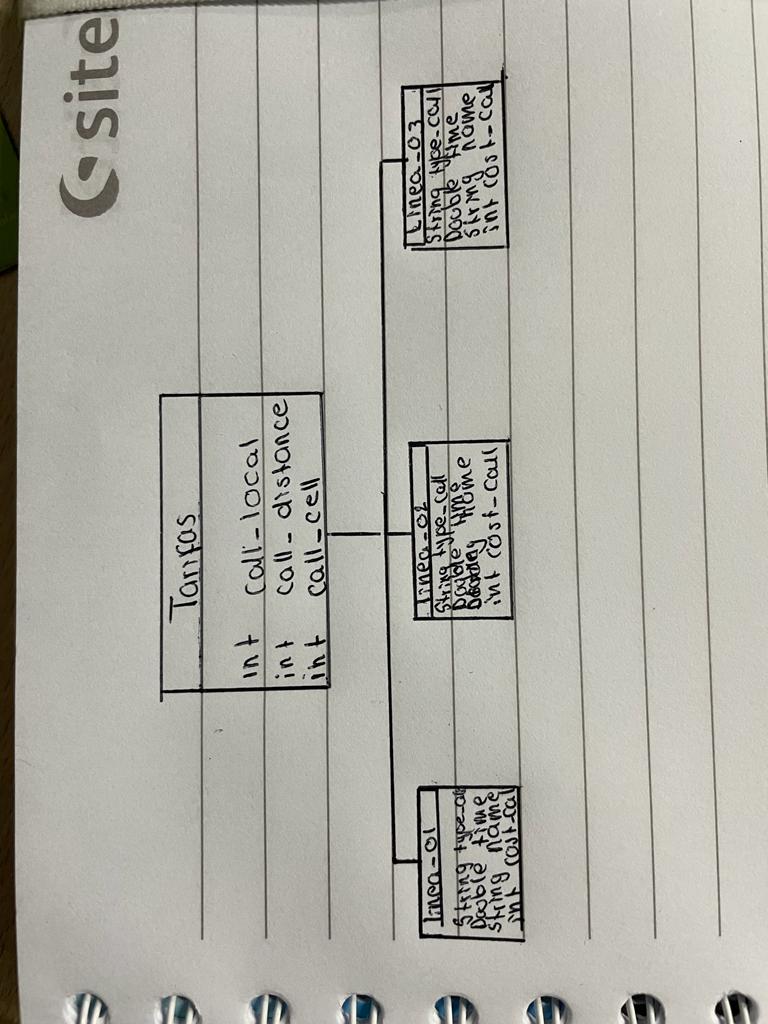 site
Tarifas
int call-local
int call-distance
int call-cell
linea-01
String type-call
Double time
String name
int cost-cal
Linea-02
String type-call
Double time
name
int cost-call
Linea-03
String type-call
Double time
String name
int cost-call